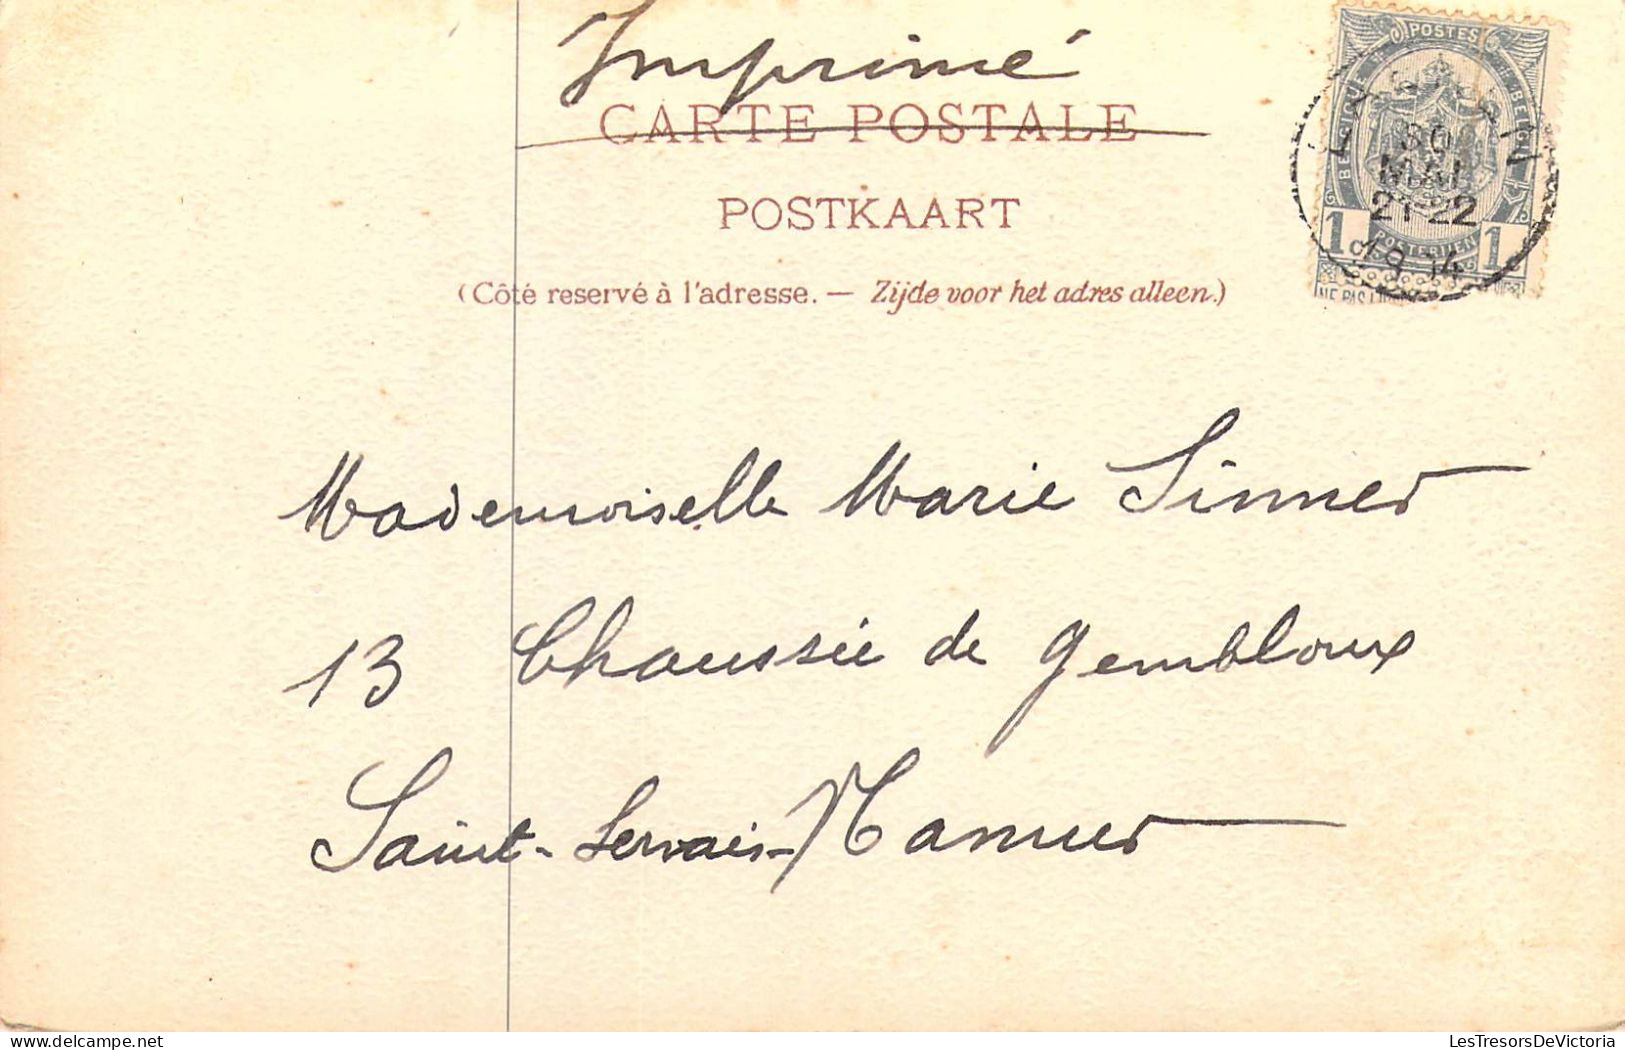 Imprimé
CARTE POSTALE
POSTKAART
(Côté reservé à l'adresse. — Zijde voor het adres alleen.)
POSTES
BELGIQUE BELGIË
30
MAI
21-22
1914
1 POSTERIJEN 1
NE PAS
Mademoiselle Marie Sinner
13 Chaussée de Gembloux
Saint-Servais-Namur
LesTresorsDeVictoria
delcampe.net